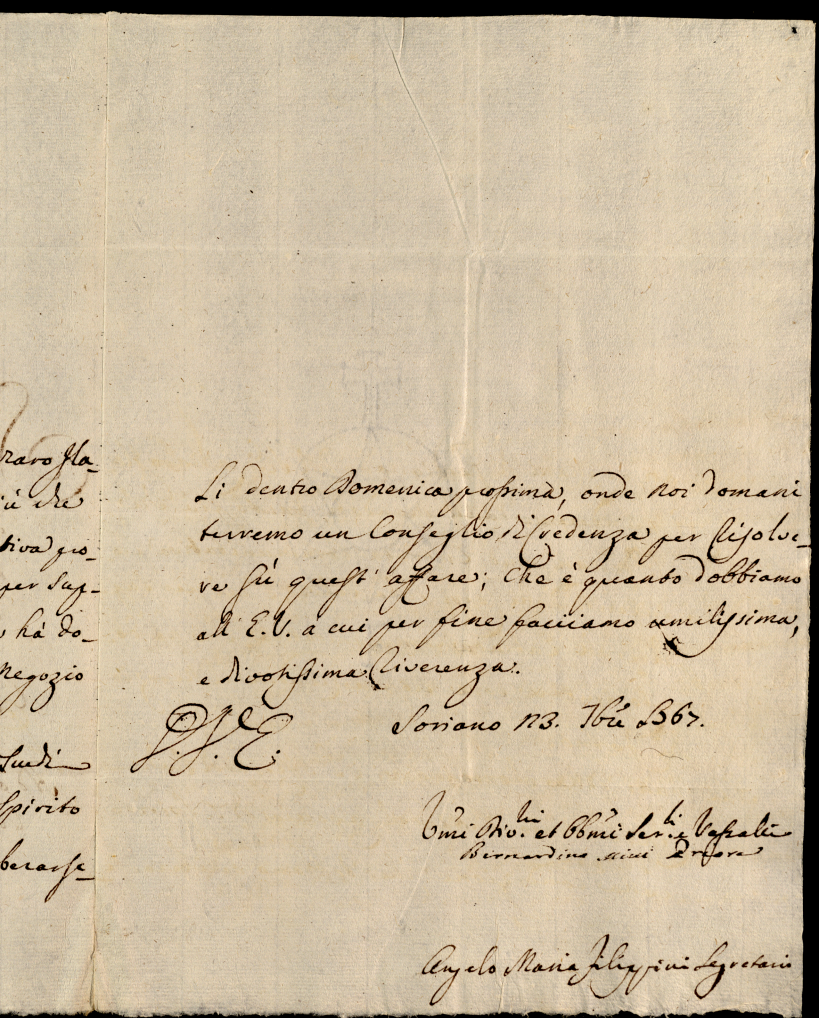 raro Sta-
iù che
tiva pro-
per Sup-
hà do-
Negozio
Sudi
Spirito
berasse-
Li dentro Domenica prossima, onde noi domani
terremo un Conseglio di Credenza per Risolve-
re sù quest' affare; Che è quanto dobbiamo
all' E.V. a cui per fine facciamo umilissima,
e divotissima Riverenza.
D. V. E.
Soriano 13. 7bre 1767.
Umi Divmi. et Obbmi Servi. e Vassalli
Bernardino Priore
Angelo Maria Filippini Segretario